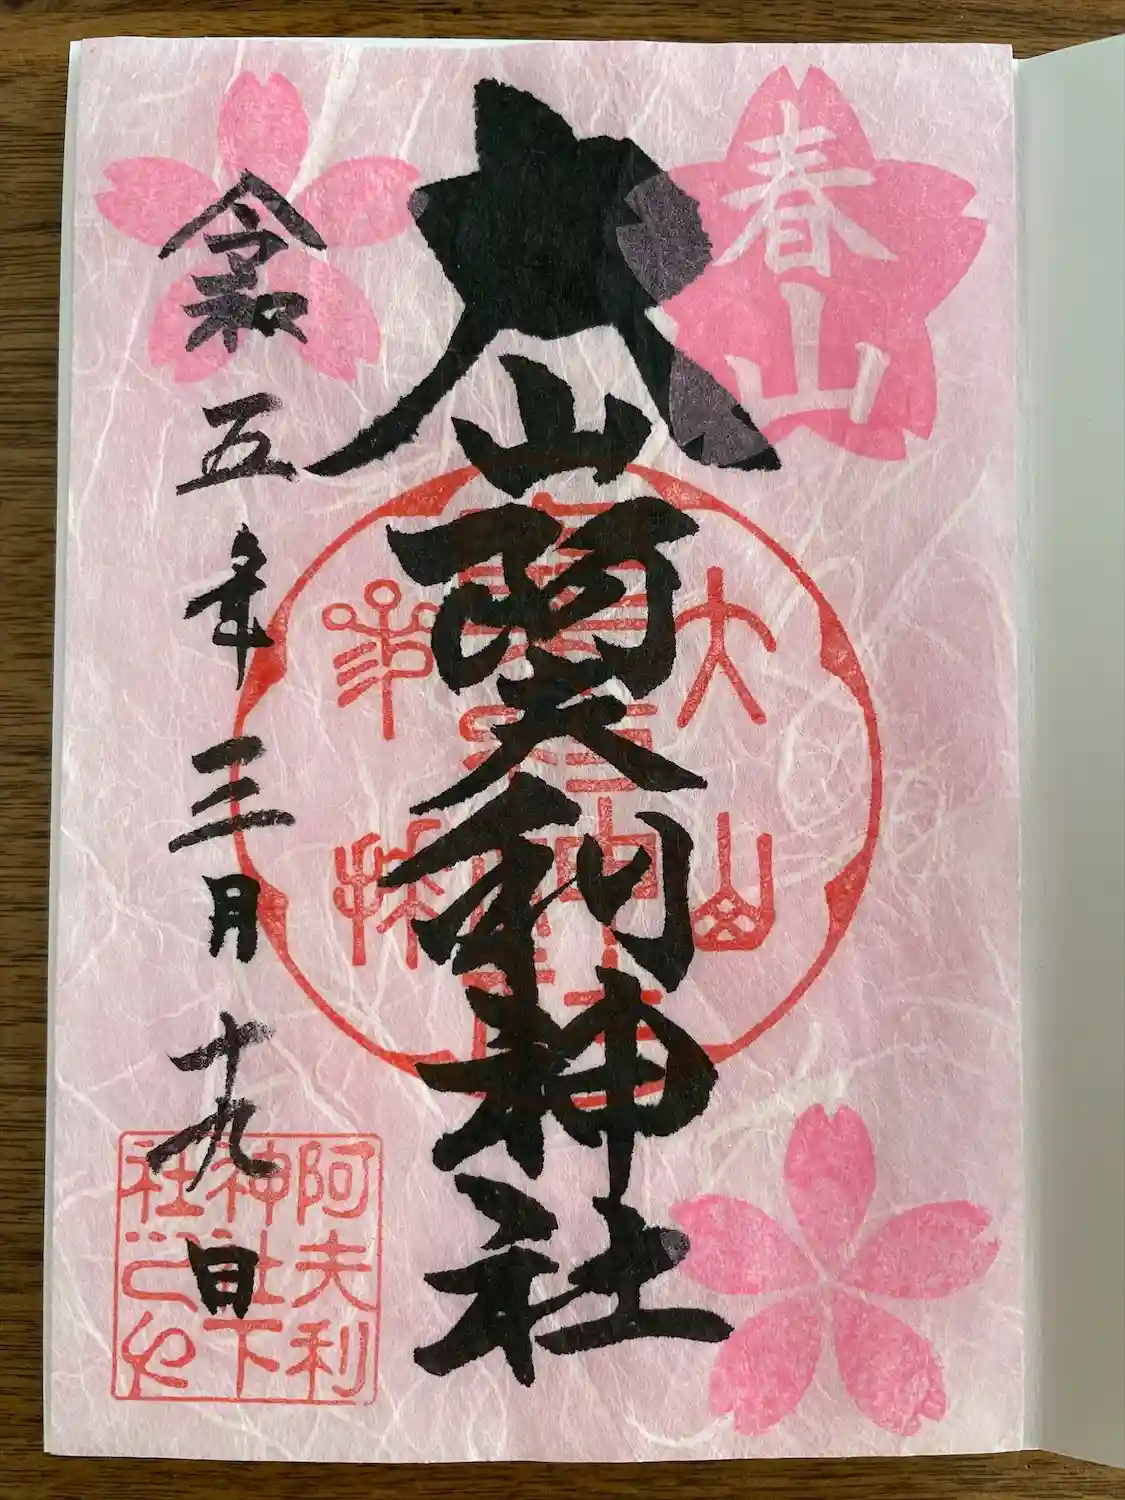 春山
大山阿夫利神社
大山
令和五年三月十九日
阿夫利
神社下
社之印